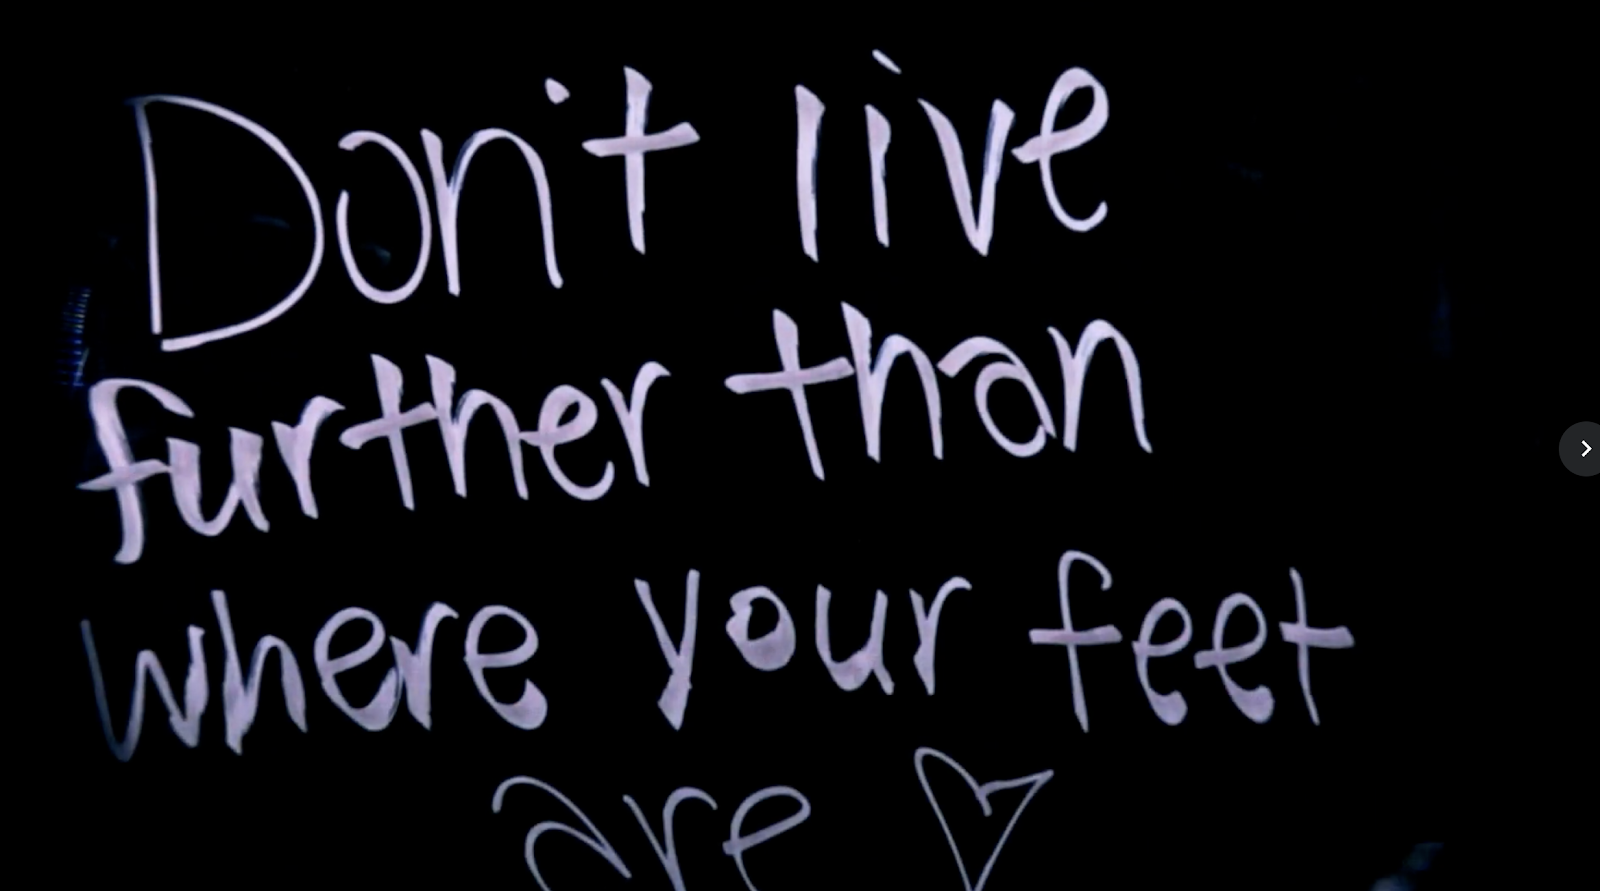 Don't live
further than
where your feet
are ♡